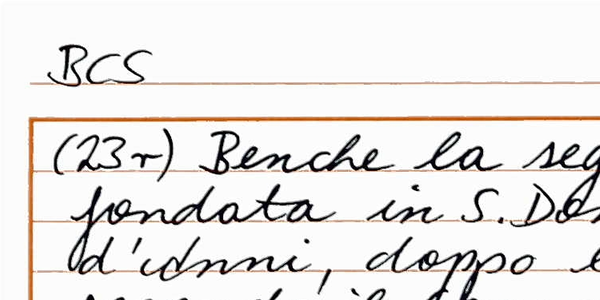 BCS
(23r) Benche la seg
fondata in S. Do
d'anni, doppo